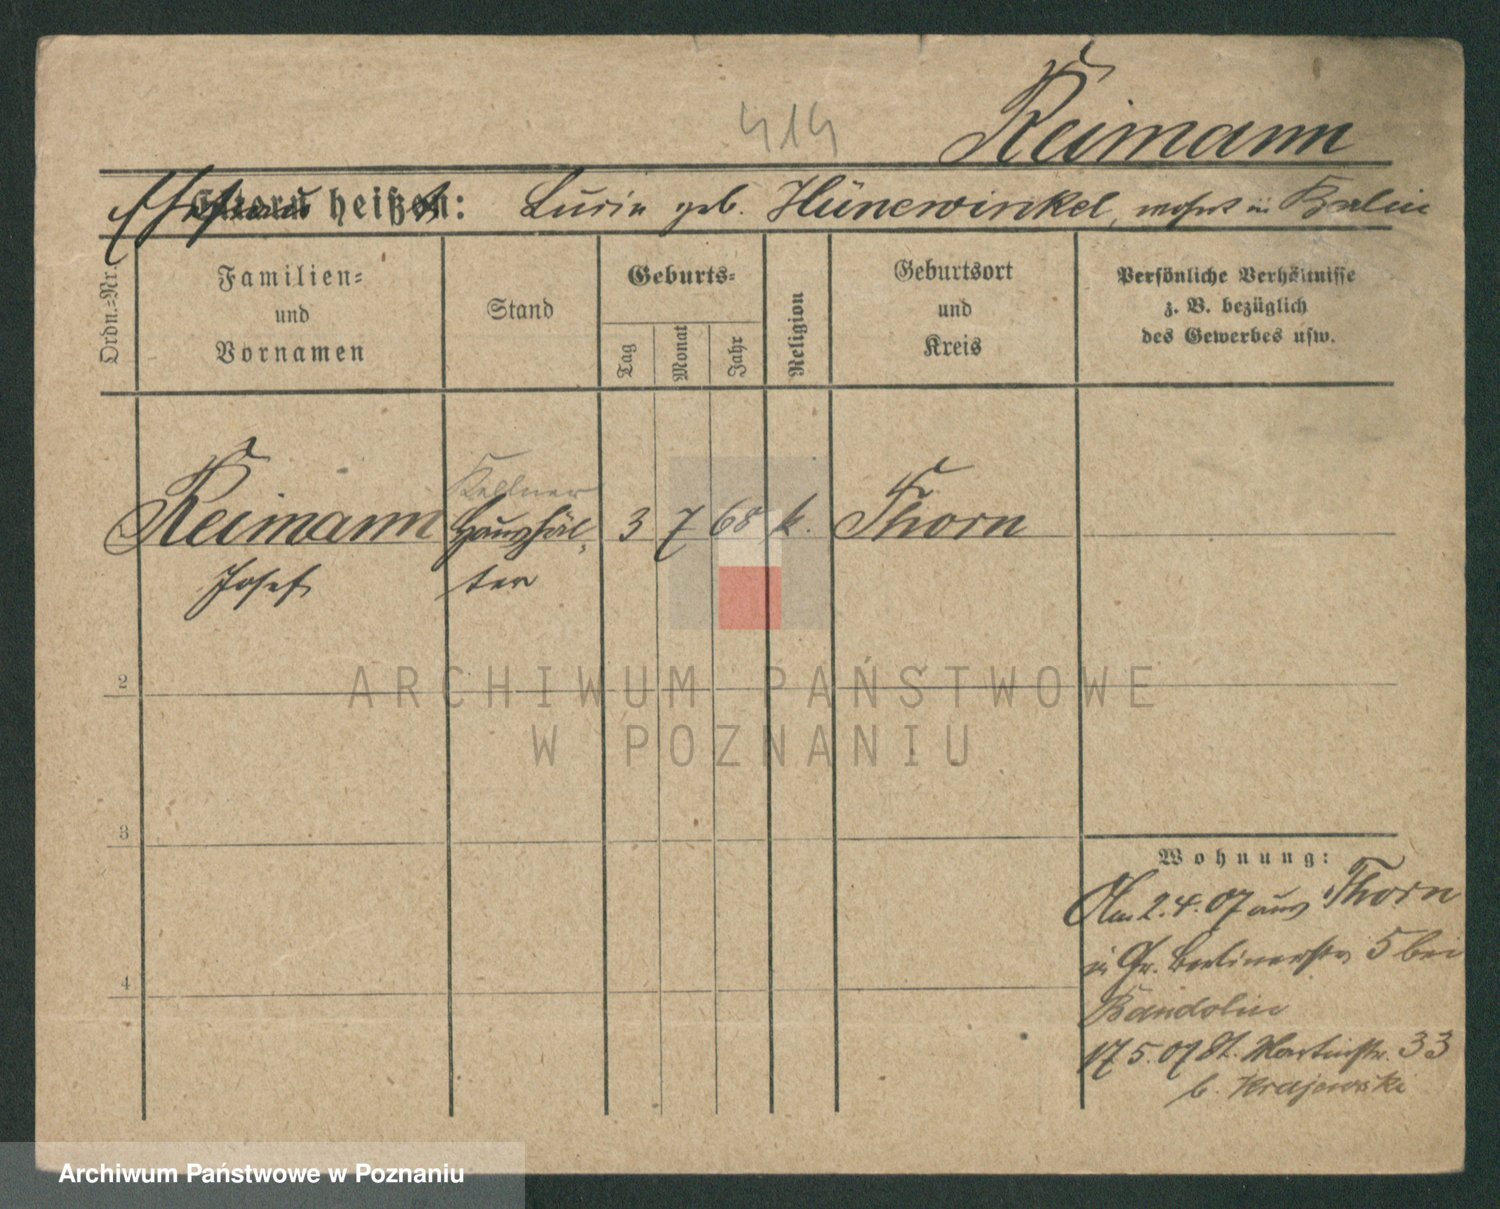 414
Reimann
Eltern heißen:
Ehefrau geb. Hünewinkel, wohnt in Berlin
Ordn.=Nr.
Familien=
und
Vornamen
Stand
Geburts=
Tag
Monat
Jahr
Religion
Geburtsort
und
Kreis
Persönliche Verhältnisse
z. B. bezüglich
des Gewerbes usw.
Kellner
Reimann Haushäl- 3 7 68 k. Thorn
Josef ter
2
3
4
Wohnung:
Am 2.4.07 aus Thorn
in Gr. Berlinerstr 5 bei
Bandolin
17 5.07 St. Martinstr. 33
b. Krajewski
ARCHIWUM PAŃSTWOWE
W POZNANIU
Archiwum Państwowe w Poznaniu